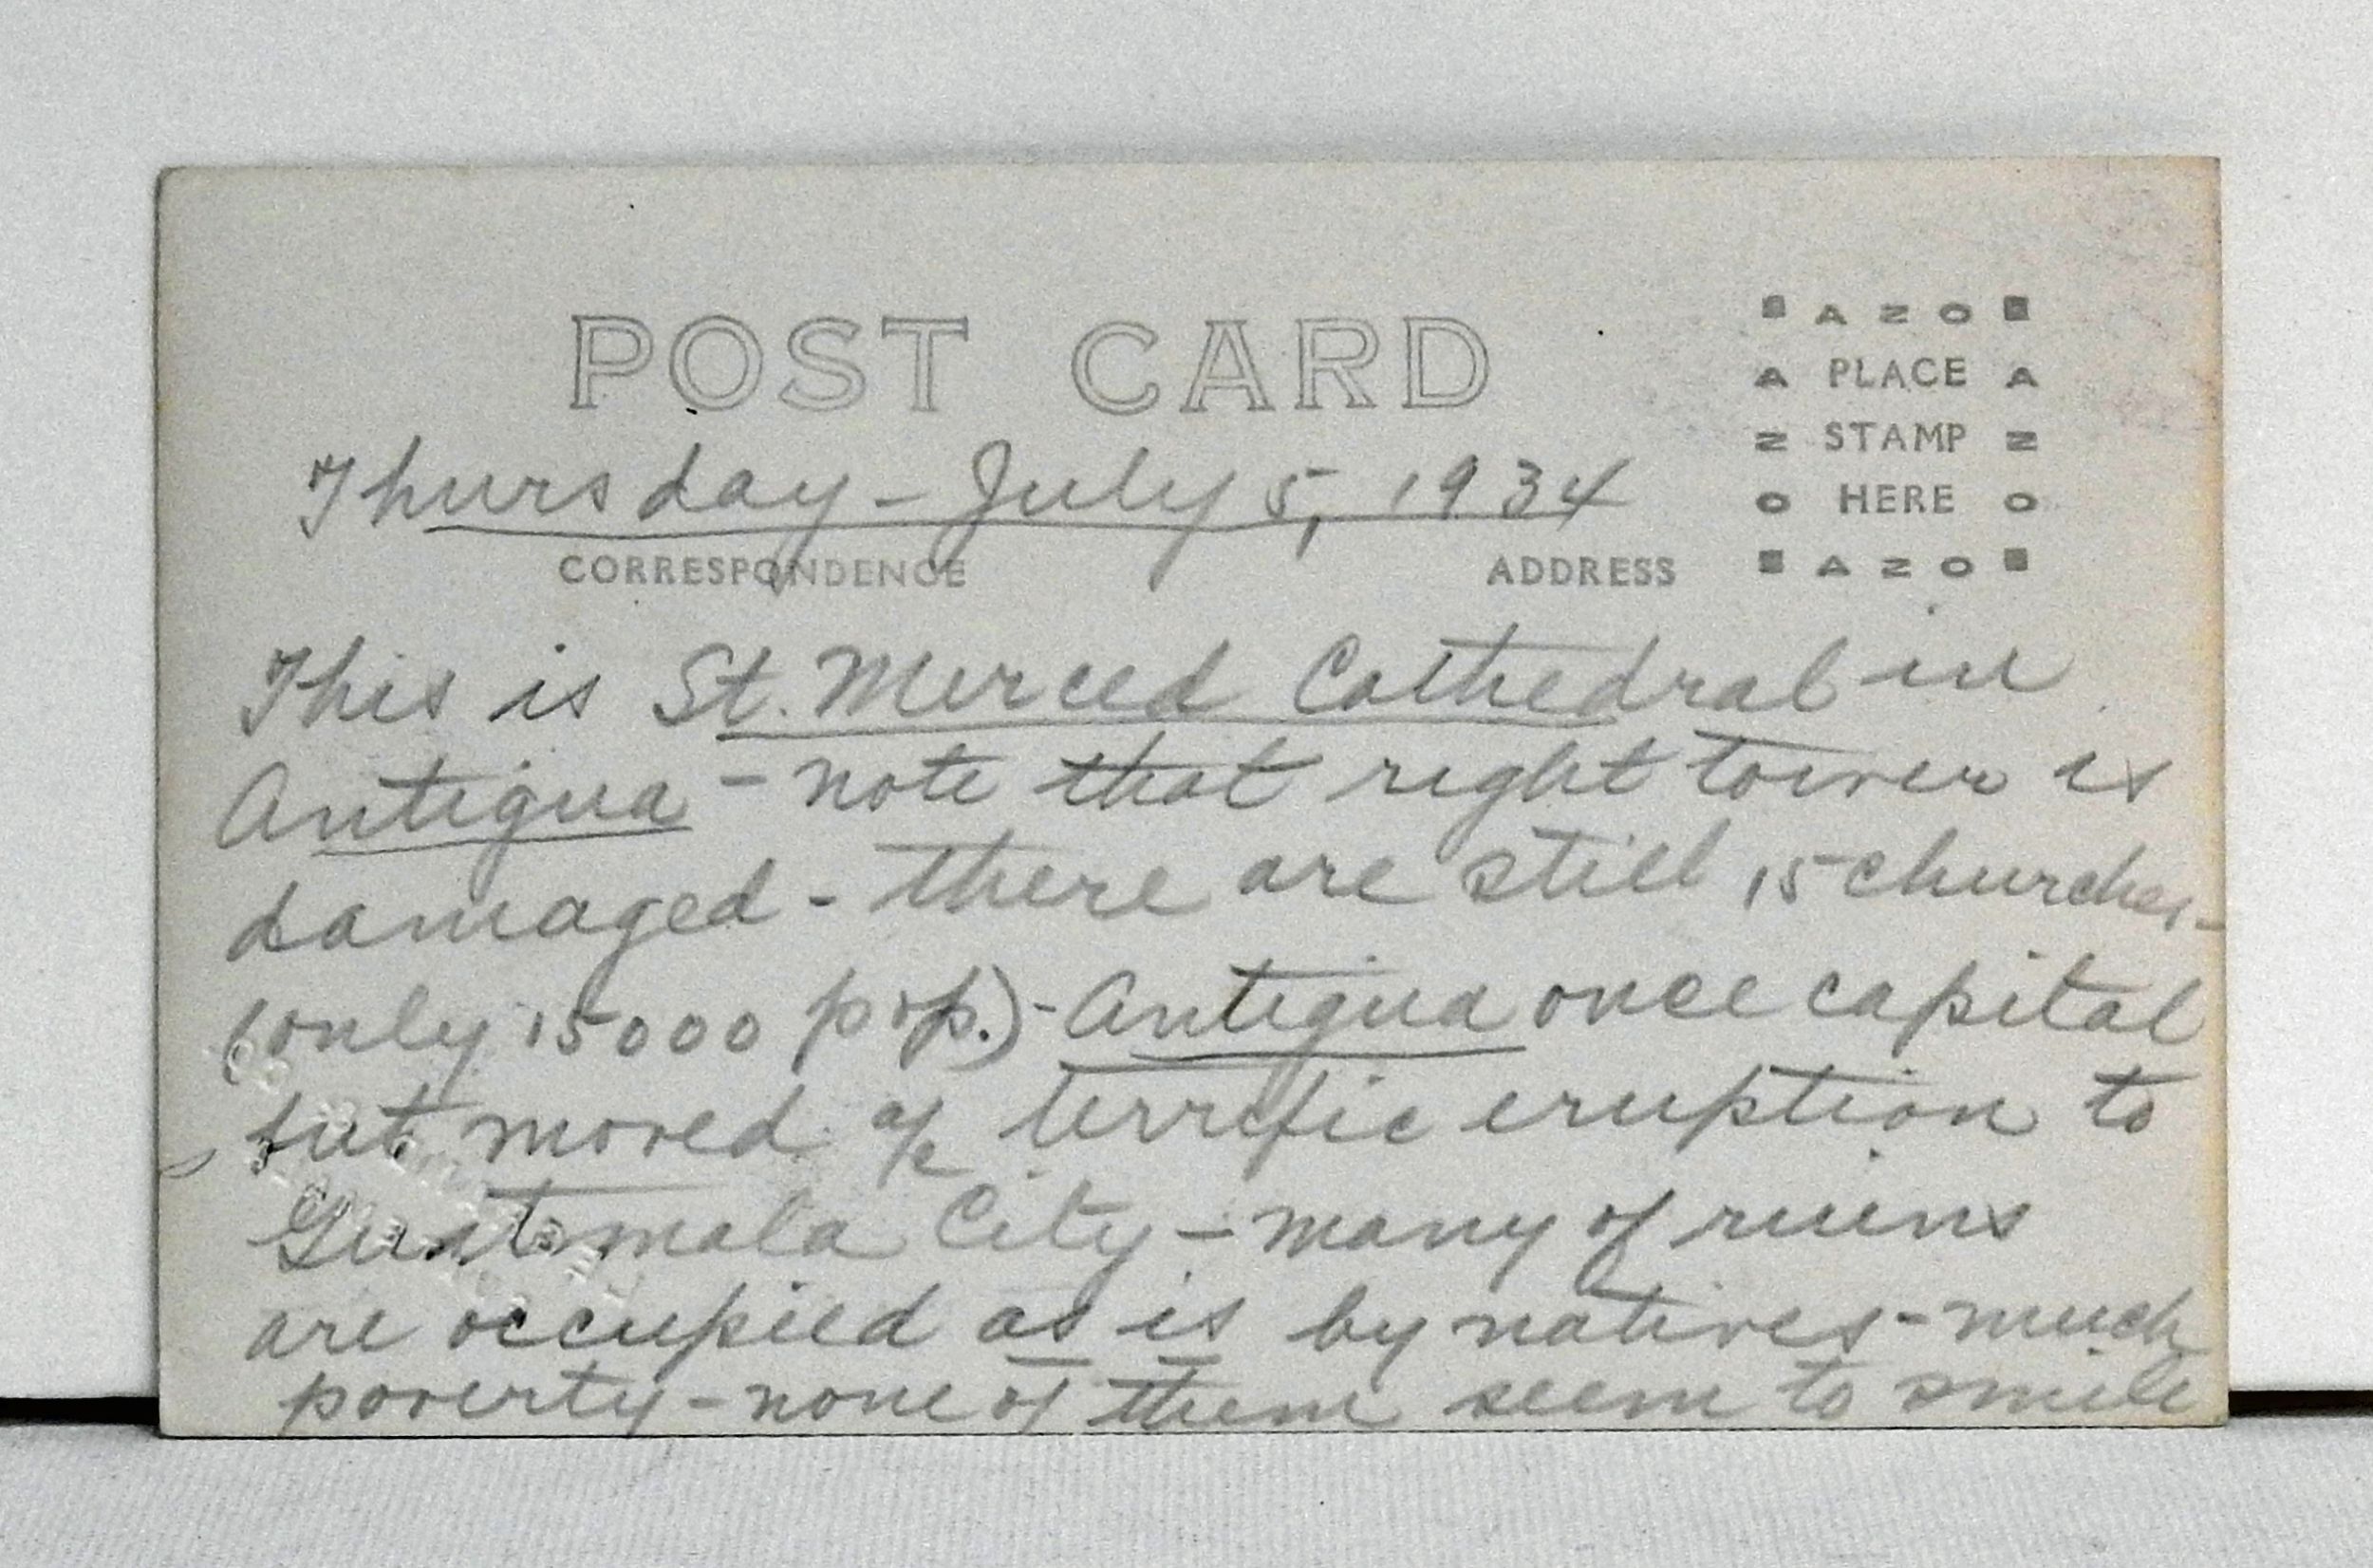 POST CARD
AZO
A PLACE A
Z STAMP Z
O HERE O
AZO
Thursday - July 5, 1934
CORRESPONDENCE ADDRESS
This is St. Merced Cathedral in
Antigua - note that right tower is
damaged - there are still 15 churches -
(only 15000 pop.) - Antigua once capital
but moved a/c terrific eruption to
Guatemala City - many of ruins
are occupied as is by natives - much
poverty - none of them seem to smile